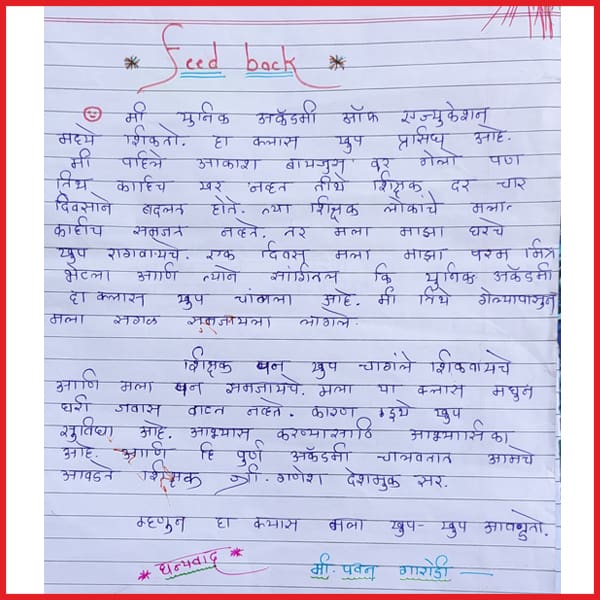 Feed back
मी युनिक अकॅडमी ऑफ एज्युकेशन
मध्ये शिकतो. हा क्लास खुप प्रसिध्द आहे.
मी पहिले आकाश बायजुस वर गेलो पण
तिथ काहिच खर नव्हत तीथे शिक्षक दर चार
दिवसाने बदलत होते. त्या शिक्षक लोकांचे मला
काहीच समजत नव्हते. तर मला माझा घरचे
खुप रागवायचे. एक दिवस मला माझा परम मित्र
भेटला आणि त्याने सांगितल कि युनिक अकॅडमी
हा क्लास खुप चांगला आहे. मी तिथे गेल्यापासुन
मला सगळ समजायला लागले.
शिक्षक पन खुप चागंले शिकवायचे
आणि मला पन समजायचे. मला या क्लास मधुन
घरी जवास वाटत नव्हते. कारण इथे खुप
सुविधा आहे. अभ्यास करण्यासाठि अभ्यासिका
आहे. आणि हि पुर्ण अकॅडमी चालवतात आमचे
आवडते शिक्षक श्री. गणेश देशमुक सर.
म्हणुन हा क्लास मला खुप-खुप आवडतो.
धन्यवाद
मी. पवन गारोडी